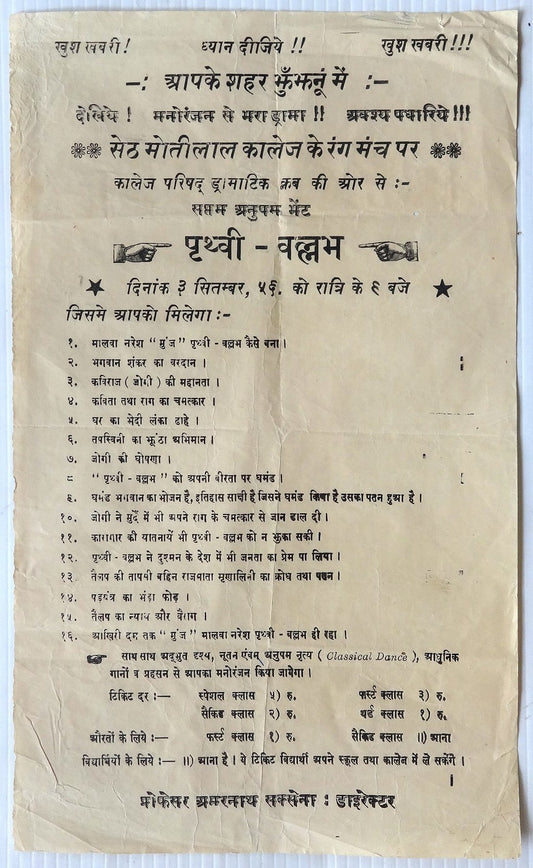 खुश खबरी ! ध्यान दीजिये !! खुश खबरी !!!
–: आपके शहर झुँझनूं में :–
देखिये ! मनोरंजन से भरा ड्रामा !! अवश्य पधारिये !!!
सेठ मोतीलाल कालेज के रंग मंच पर
कालेज परिषद् ड्रामाटिक क्लब की ओर से :–
सप्तम अनुपम भेंट
पृथ्वी - वल्लभ
दिनांक ३ सितम्बर, ५६. को रात्रि के ६ बजे
जिसमे आपको मिलेगा :–
१. मालवा नरेश "मुंज" पृथ्वी - वल्लभ कैसे बना ।
२. भगवान शंकर का वरदान ।
३. कविराज ( जोगी ) की महानता ।
४. कविता तथा राग का चमत्कार ।
५. घर का भेदी लंका ढाहे ।
६. तपस्विनी का झूंठा अभिमान ।
७. जोगी की घोषणा ।
८ "पृथ्वी - वल्लभ" को अपनी वीरता पर घमंड ।
९. घमंड भगवान का भोजन है, इतिहास साक्षी है जिसने घमंड किया है उसका पतन हुआ है ।
१०. जोगी ने मुर्दे में भी अपने राग के चमत्कार से जान डाल दी ।
११. कारागार की यातनायें भी पृथ्वी - वल्लभ को न झुका सकी ।
१२. पृथ्वी - वल्लभ ने दुश्मन के देश में भी जनता का प्रेम पा लिया ।
१३. तैलप की तापषी बहिन राजमाता मृणालिनी का क्रोध तथा पतन ।
१४. षड़यंत्र का भंडा फोड़ ।
१५. तैलप का न्याय और वैराग ।
१६. आखिरी दम तक "मुंज" मालवा नरेश पृथ्वी - वल्लभ ही रहा ।
साथ साथ अद्भुत दृश्य, नूतन एंवम् अनुपम नृत्य ( Classical Dance ), आधुनिक
गानों व प्रहसन से आपका मनोरंजन किया जायेगा ।
टिकिट दर :— स्पेशल क्लास ५) रु. फर्स्ट क्लास ३) रु.
सैकिंड क्लास २) रु. थर्ड क्लास १) रु.
औरतों के लिये :— फर्स्ट क्लास १) रु. सैकिंड क्लास ॥) आना
विद्यार्थियों के लिये :— ॥) आना है । ये टिकिट विद्यार्थी अपने स्कूल तथा कालेज में ले सकेंगे ।
प्रोफेसर अमरनाथ सक्सेना : डाइरेक्टर